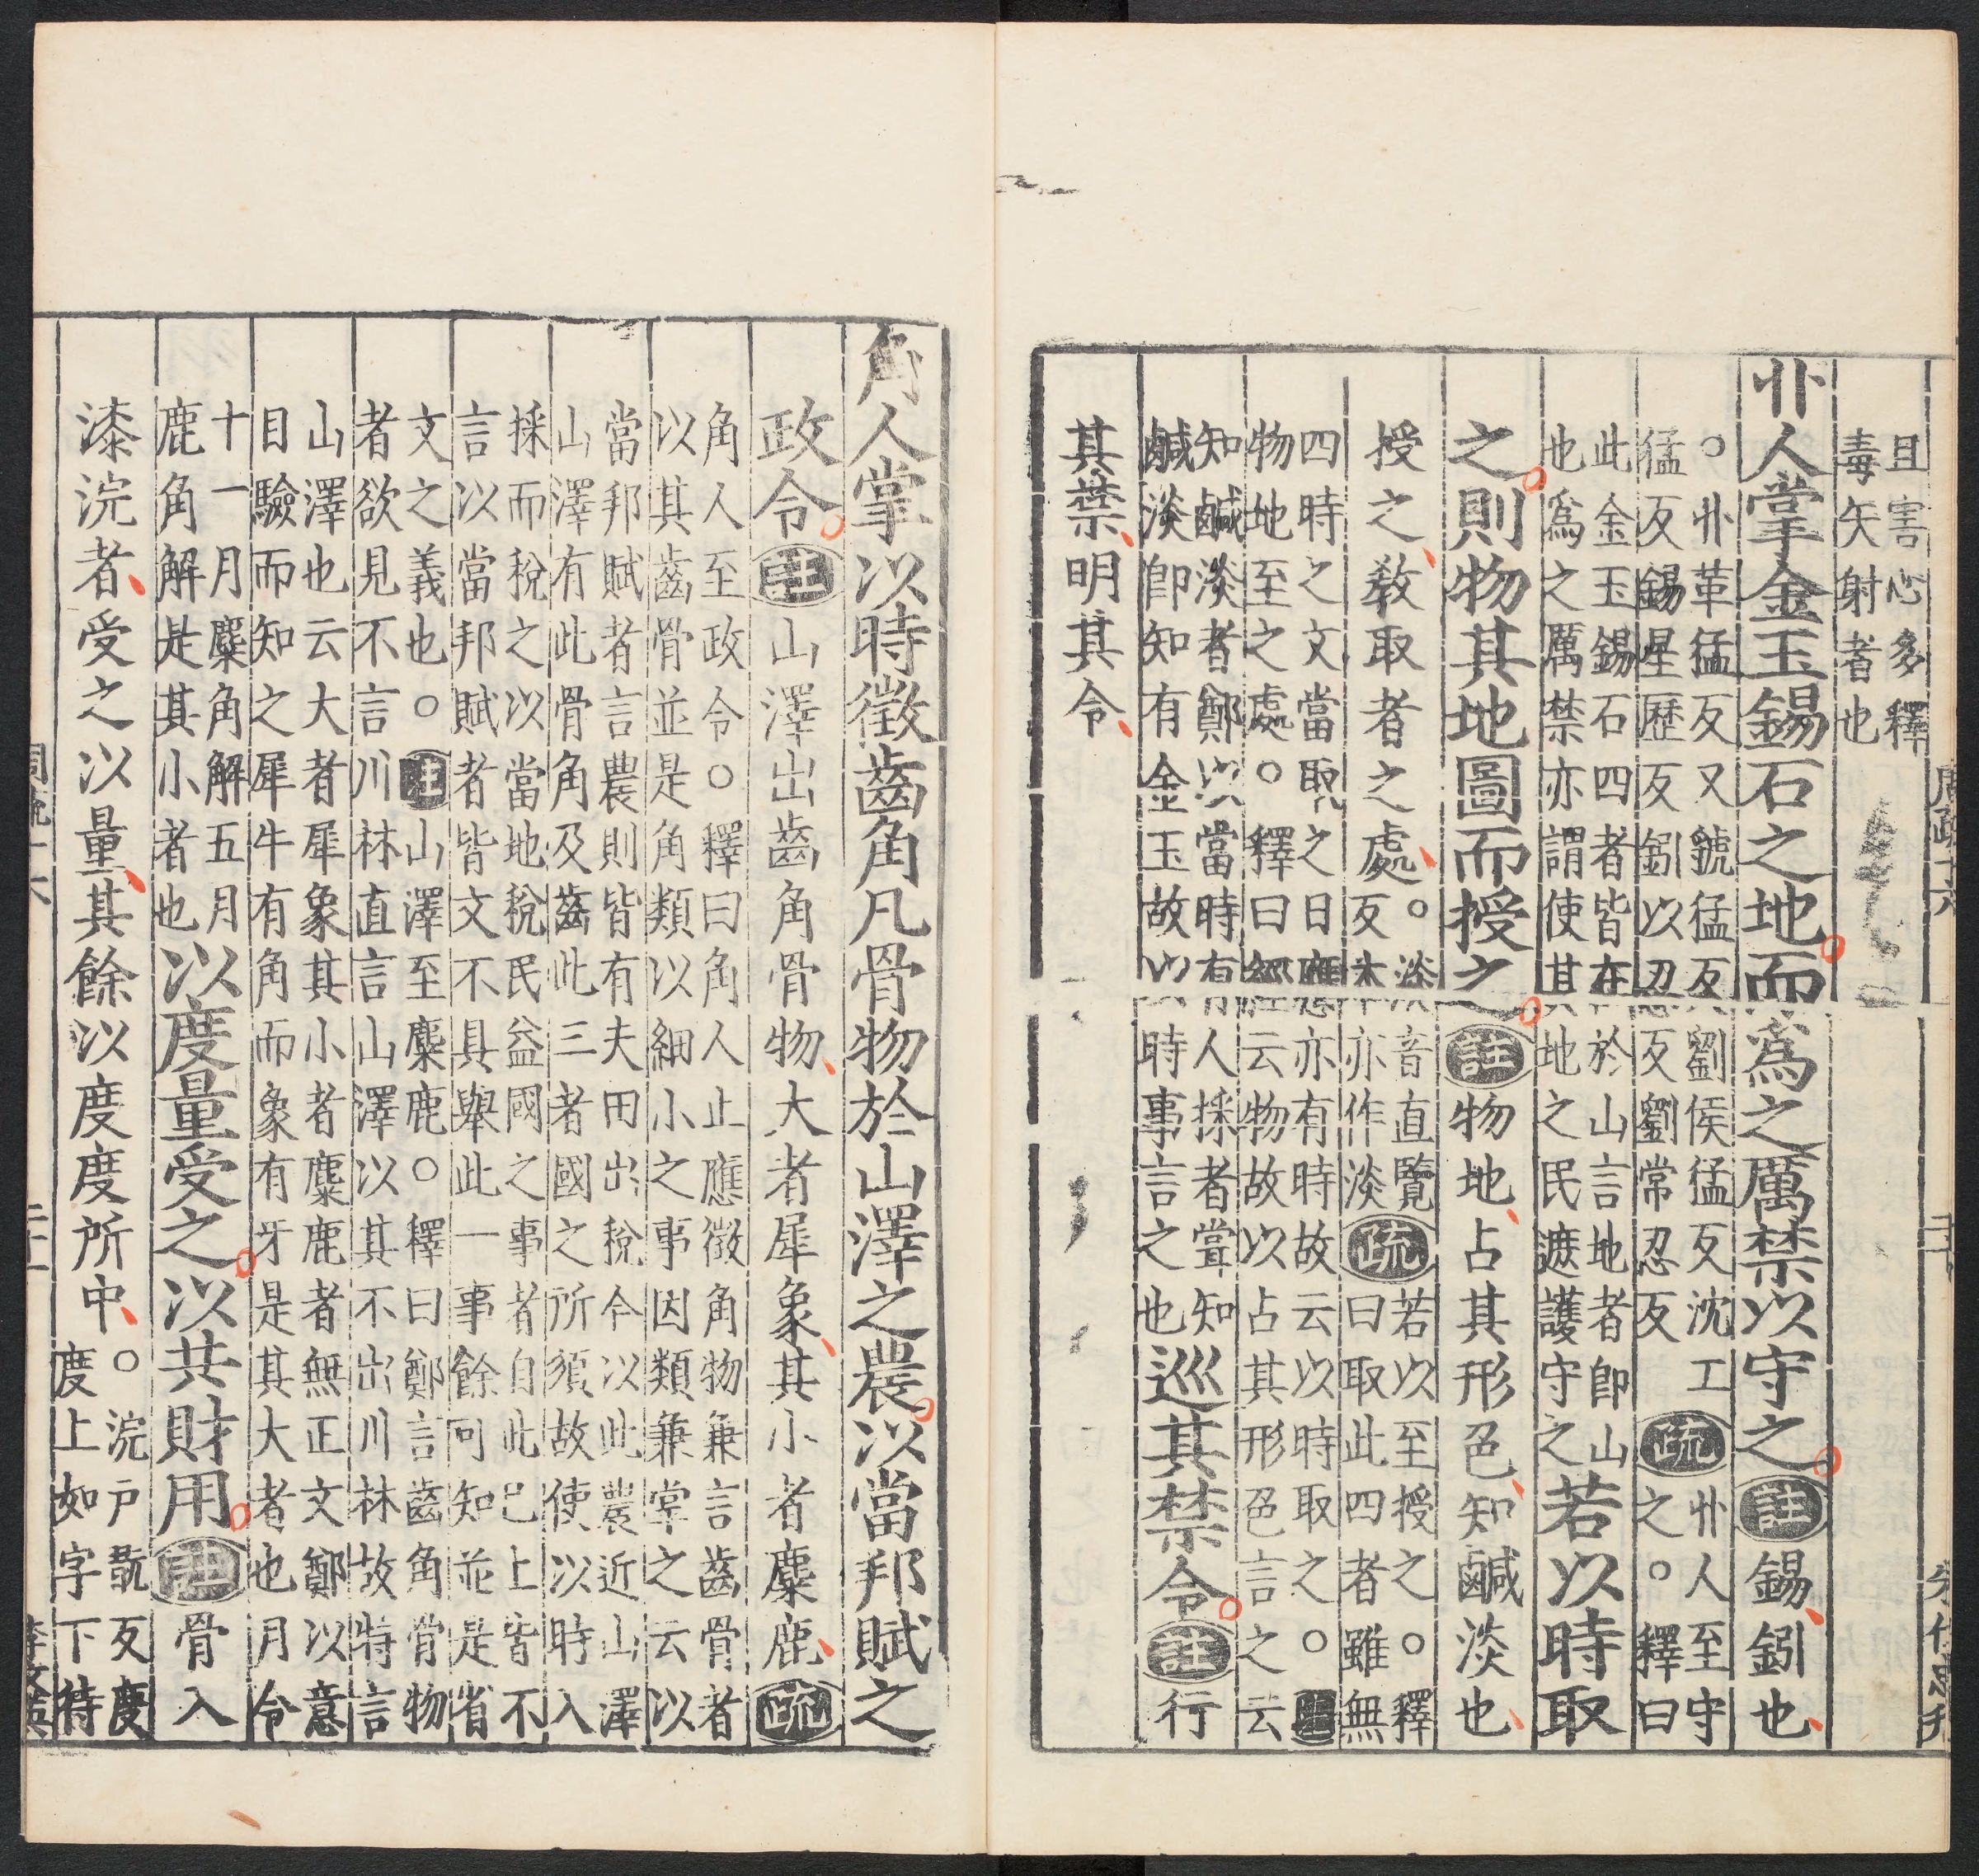 且害心多釋
毒矢射者也
卝人掌金玉錫石之地而爲之厲禁以守之註錫鈏也
○卝革猛反又虢猛反劉侯猛反沈工
猛反錫星歷反鈏以忍反劉常忍反
疏
卝人至守
之○釋曰
此金玉錫石四者皆在於山言地者即山
也爲之厲禁亦謂使其地之民遮護守之
若以時取
之則物其地圖而授之註物地占其形色知鹹淡也
授之教取者之處
○淡音直覽
反本亦作淡
疏
若以至授之○釋
曰取此四者雖無
四時之文當取之日應亦有時故云以時取之○註
物地至之處○釋曰經云物故以占其形色言之云
知鹹淡者鄭以當時有人採者嘗知
鹹淡即知有金玉故以時事言之也
巡其禁令註行
其禁明其令
周疏十六
角人掌以時徵齒角凡骨物於山澤之農以當邦賦之
政令註山澤出齒角骨物大者犀象其小者麋鹿疏
角人至政令○釋曰角人止應徵角物兼言齒骨者
以其齒骨並是角類以細小之事因類兼掌之云以
當邦賦者言農則皆有夫田出稅今以此農近山澤
山澤有此骨角及齒此三者國之所須故使以時入
採而稅之以當地稅民益國之事者自此已上皆不
言以當邦賦者皆文不具舉此一事餘可知並是省
文之義也○註山澤至麋鹿○釋曰鄭言齒角骨物
者欲見不言川林直言山澤以其不出川林故特言
山澤也云大者犀象其小者麋鹿者無正文鄭以意
目驗而知之犀牛有角而象有牙是其大者也月令
十一月麋角解五月
鹿角解是其小者也
以度量受之以共財用註骨入
漆浣者受之以量其餘以度度所中
○浣戶翫反度度
度上如字下待
周疏十六
二十一
李文英